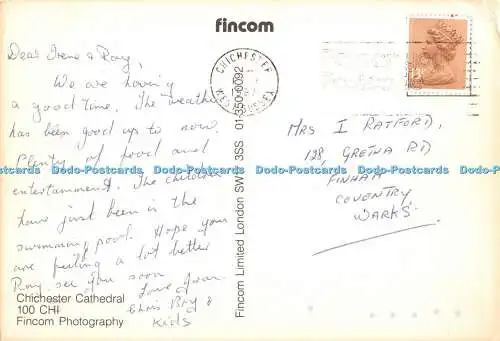 fincom
Dear Irene & Roy,
We are having
a good time. The weather
has been good up to now.
Plenty of food and
entertainment. The children
have just been in the
swimming pool. Hope you
are feeling a lot better
Roy. see you soon
Love from
Chris Roy &
Kids
Chichester Cathedral
100 CHI
Fincom Photography
Fincom Limited London SW 3SS 01-350-0092
CHICHESTER
WEST SUSSEX
MRS I RATFORD,
128, GRETNA RD
FINHAM
COVENTRY
WARKS.
Dodo-Postcards Dodo-Postcards Dodo-Postcards Dodo-Postcards Dodo-Postcards